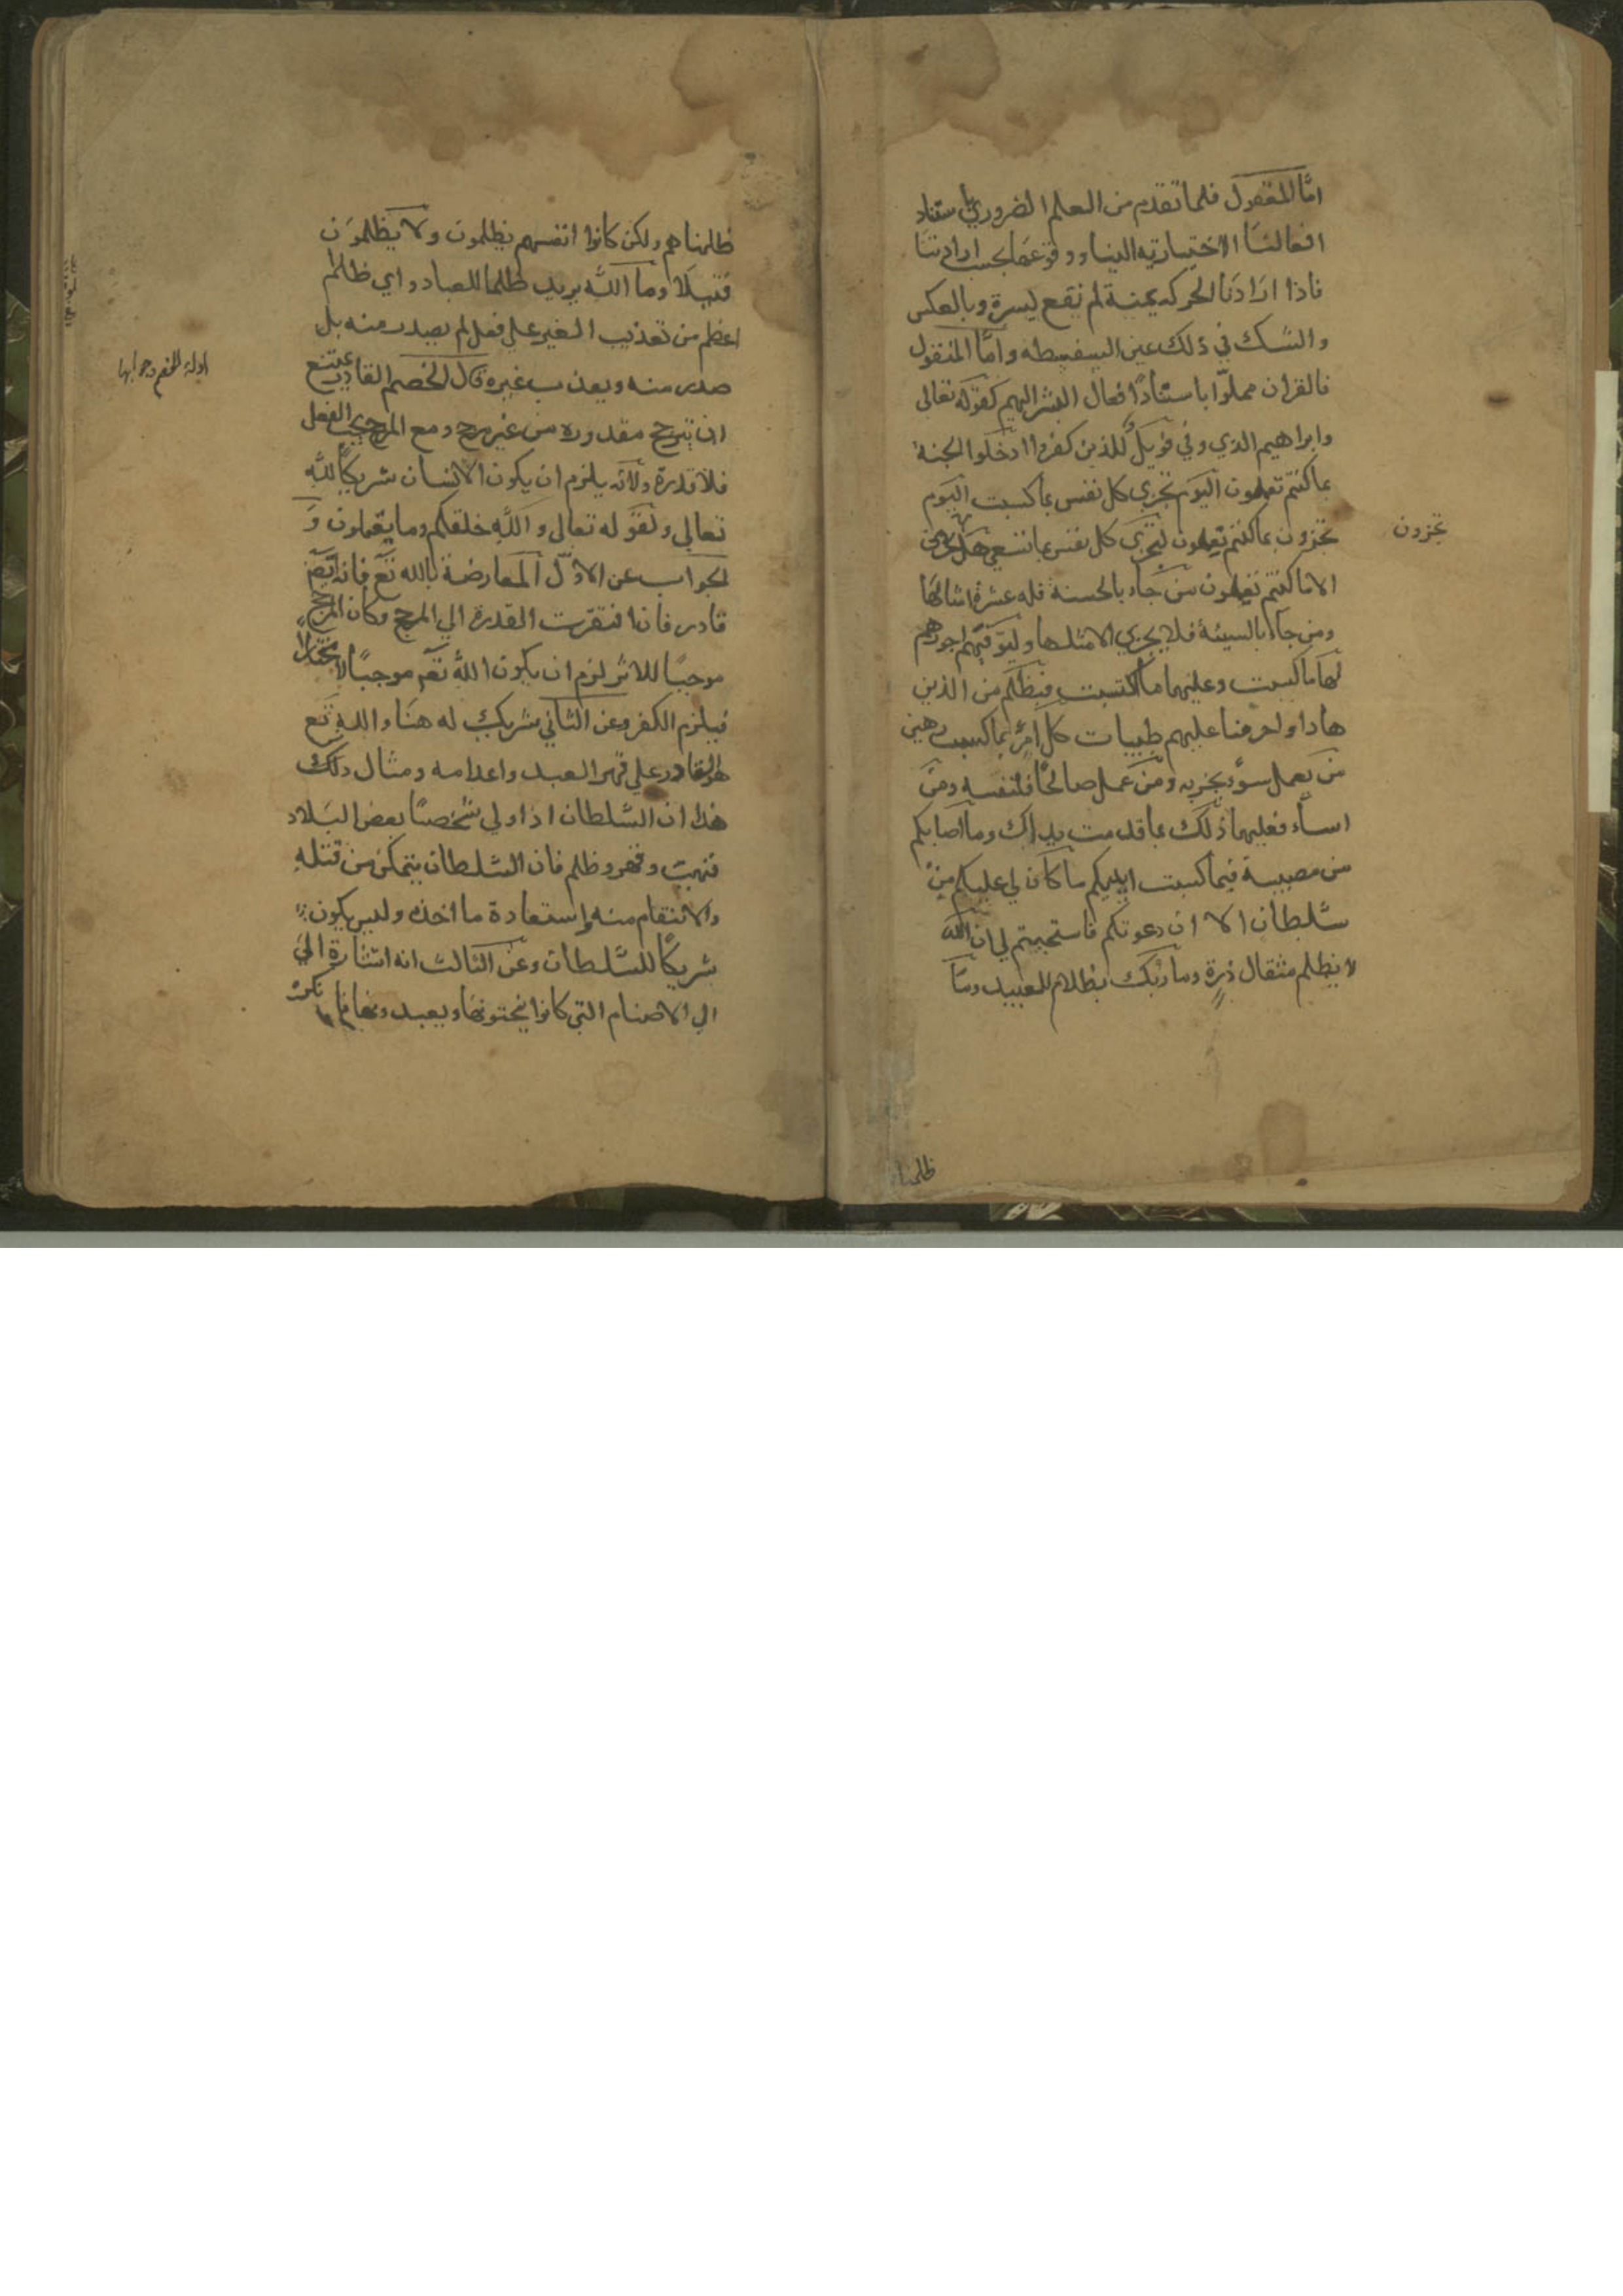 اما المعقول فلما تقدم من العلم الضروري باستناد
افعالنا الاختياريه الينا ووقوعها بحسب ارادتنا
فاذا اردنا الحركه يمنة لم تقع يسرة وبالعكس
والشك في ذلك عين السفسطه واما المنقول
فالقران مملوا باستناد افعال البشر اليهم كقوله تعالى
وابراهيم الذي وفي فويل للذين كفروا ادخلوا الجنة
بما كنتم تعملون اليوم تجزي كل نفس بما كسبت اليوم
تجزون بما كنتم تعملون لتجزى كل نفس بما تسعى هل تجزون
تجزون
الا ما كنتم تعملون من جاء بالحسنة فله عشر امثالها
ومن جاء بالسيئة فلا يجزي الا مثلها وليوفيهم اجورهم
لها ما كسبت وعليها ما اكتسبت فبظلم من الذين
هادوا حرمنا عليهم طيبات كل امرئ بما كسب رهين
من يعمل سوء يجز به ومن عمل صالحًا فلنفسه ومن
اساء فعليها ذلك بما قدمت يداك وما اصابكم
من مصيبة فبما كسبت ايديكم ما كان لي عليكم من
سلطان الا ان دعوتكم فاستجبتم لي ان الله
لا يظلم مثقال ذرة وما ربك بظلام للعبيد وما
ظلمنا
ظلمناهم ولكن كانوا انفسهم يظلمون ولا يظلمون
فتيلا وما الله يريد ظلما للعباد واي ظلم
اعظم من تعذيب الغير علي فعل لم يصدر منه بل
صدر منه ويعذب غيره قال الخصم القادر يمتنع
ادلة الخصم وجوابها
ان يترجح مقدوره من غير مرجح ومع المرجح يجب الفعل
فلا قدرة ولانه يلزم ان يكون الانسان شريكًا لله
تعالي ولقوله تعالى والله خلقكم وما تعملون و
الجواب عن الاول المعارضة بالله تع فانه تع
قادر فان افتقرت القدرة الي المرجح وكان المرجح
موجبًا للاثر لزم ان يكون الله تع موجبًا لا مختارًا
فيلزم الكفر وعن الثاني شريك له هنا والله تع
هو القادر علي قهر العبد واعدامه ومثال ذلك
هذا ان السلطان اذا ولي شخصًا بعض البلاد
فنهب وقهر وظلم فان السلطان يتمكن من قتله
والانتقام منه واستعادة ما اخذه وليس يكون
شريكًا للسلطان وعن الثالث انه اشارة الي
الي الاصنام التي كانوا ينحتونها ويعبدونها فانكر